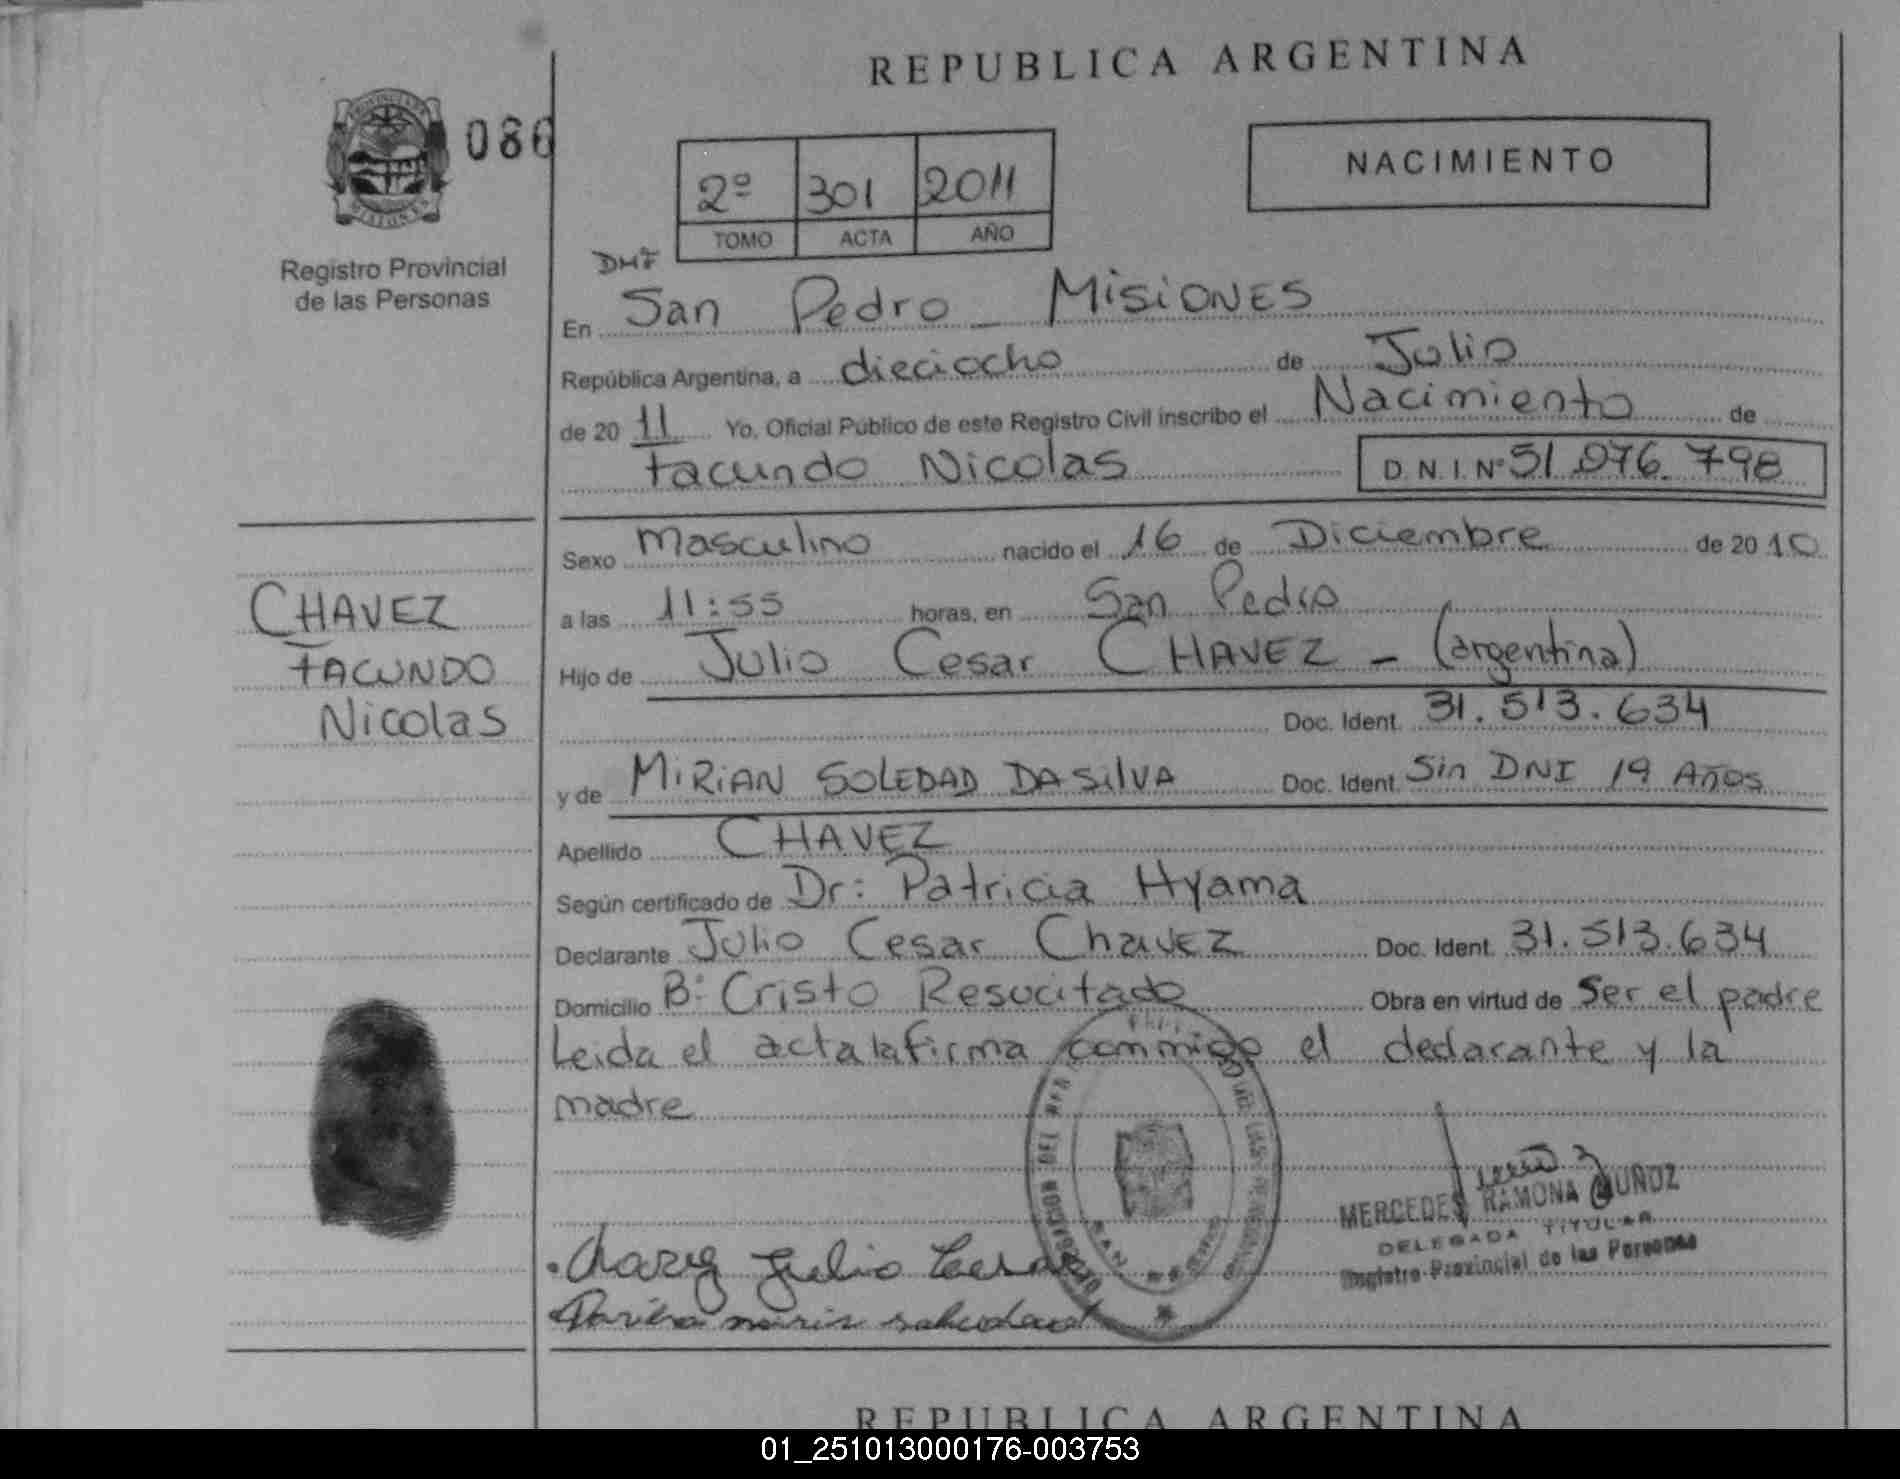 REPUBLICA ARGENTINA
086
NACIMIENTO
2º 301 2011
TOMO ACTA AÑO
Registro Provincial
de las Personas
En San Pedro - MisiONES
República Argentina, a dieciocho de Julio
de 20 11 Yo, Oficial Público de este Registro Civil inscribo el Nacimiento de
Facundo Nicolas D.N.I.Nº 51.076.798
Sexo Masculino nacido el 16 de Diciembre de 20 10
CHAVEZ
FACUNDO
Nicolas
a las 11:55 horas, en San Pedro
Hijo de Julio Cesar CHAVEZ - (argentina)
Doc. Ident. 31.513.634
y de MiRiAN SOLEDAD DA SilVA Doc. Ident. Sin DNI 19 AÑOS
Apellido CHAVEZ
Según certificado de Dr: Patricia Hyama
Declarante Julio Cesar ChavEZ Doc. Ident. 31.513.634
Domicilio Bº Cristo Resucitado Obra en virtud de Ser el padre
Leida el acta la firma conmigo el declarante y la
madre
MERCEDES RAMONA MUÑOZ
DELEGADA TITULAR
Registro Provincial de las Personas
Julio Cesar
REPUBLICA ARGENTINA
01_251013000176-003753